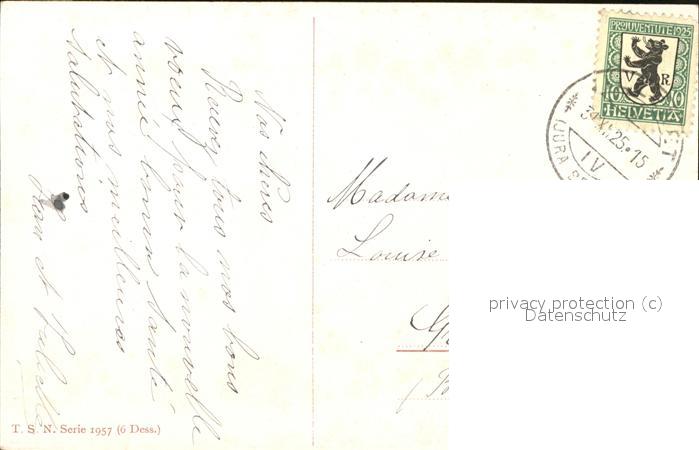 Nos chères
Recevez tous nos bons
voeux pour la nouvelle
année bonne santé
et nos meilleures
salutations
et
Madame
Louise
T. S. N. Serie 1957 (6 Dess.)
PRO JUVENTUTE 1925
V R
10 10
HELVETIA
XII.25.15
IV
(JURA
privacy protection (c)
Datenschutz